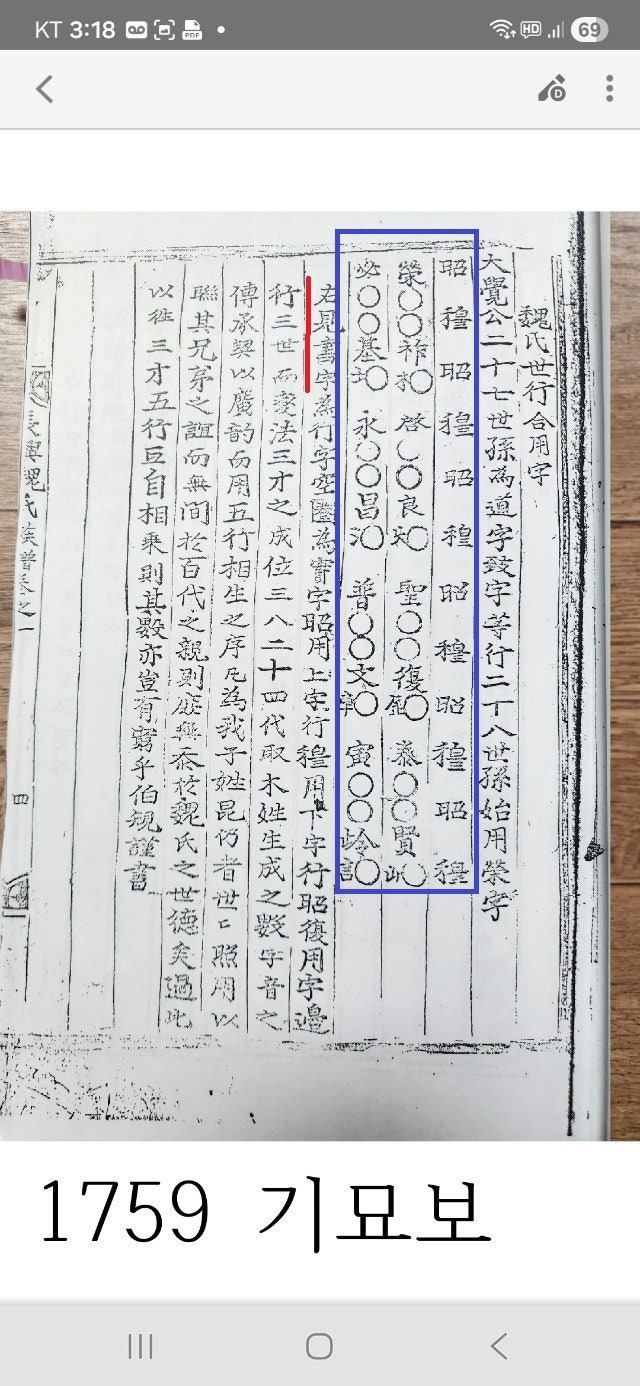 KT 3:18
PDF
HD
69
魏氏世行合用字
大覺公二十七世孫為道字致字等行二十八世孫始用榮字
昭 穆 昭 穆 昭 穆 昭 穆 昭 穆 昭 穆
榮○○祚 ○ 啓○○良 ○ 聖○○復 ○ 泰○○賢 ○
必○○基 ○ 永○○昌 ○ 普○○文 ○ 寅○○ ○
右見書字為行字空圈為實字昭用上字行穆用下字行昭復用字邊
行三世而変法三才之成位三八二十四代取木姓生成之數字音之
傳承契以廣韵而用五行相生之序凡為我子姓昆仍者世世照用以
聯其兄弟之誼而無間於百代之親則庶無忝於魏氏之世德矣過此
以徃三才五行互自相乘則其數亦豈有窮乎伯䂓謹書
長興魏氏族譜卷之一
四
1759 기묘보